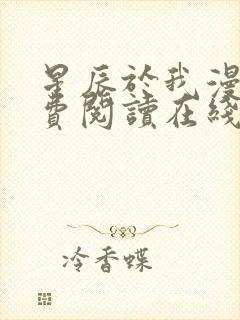 星辰於我漫
費閱讀在綫
冷香蝶